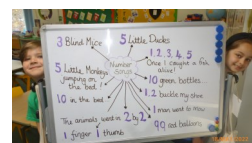 3 Blind Mice
5 Little Ducks
1, 2, 3, 4, 5
Once I caught a fish
alive!
5 Little Monkeys
jumping on
the bed
Number
Songs
10 green bottles...
1, 2 buckle my shoe
10 in the bed
1 man went to mow
The animals went in 2 by 2
99 red balloons
1 finger 1 thumb